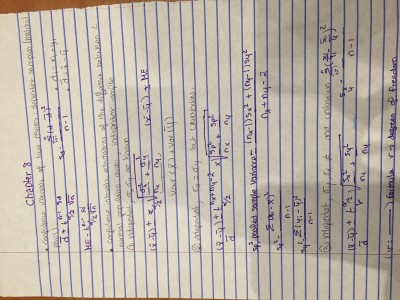 Chapter 8
• confidence interval of two mean, dependent samples (matched
pairs)
d̄ ± t n-1, α/2 sd/√n
sd² = Σ(di - d̄)²/n-1
• di = xi - yi
• d̄ = x̄ - ȳ
ME = t n-1, α/2 sd/√n
• confidence interval estimation of the difference between 2
normal population means, independent samples
(x̄ - ȳ) ± z α/2 √σx²/nx + σy²/ny
(x̄ - ȳ) ± ME
var(x̄) + var(ȳ)
② independent, σx = σy but unknown:
(x̄ - ȳ) ± t nx+ny-2, α/2 √sp²/nx + sp²/ny
sp², pooled sample variance = (nx-1)sx² + (ny-1)sy²/nx + ny - 2
sx² = Σ(xi - x̄)²/n-1
sy² = Σ(yi - ȳ)²/n-1
③ independent, σx ≠ σy and unknown
(x̄ - ȳ) ± t v, α/2 √sx²/nx + sy²/ny
(v = ) formula v = degree of freedom